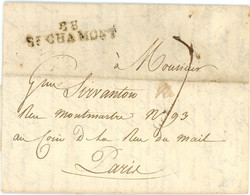 84
ST CHAMONT
à Monsieur
Servanton
Rue Montmartre N° 93
au Coin De la Rue du Mail
Paris